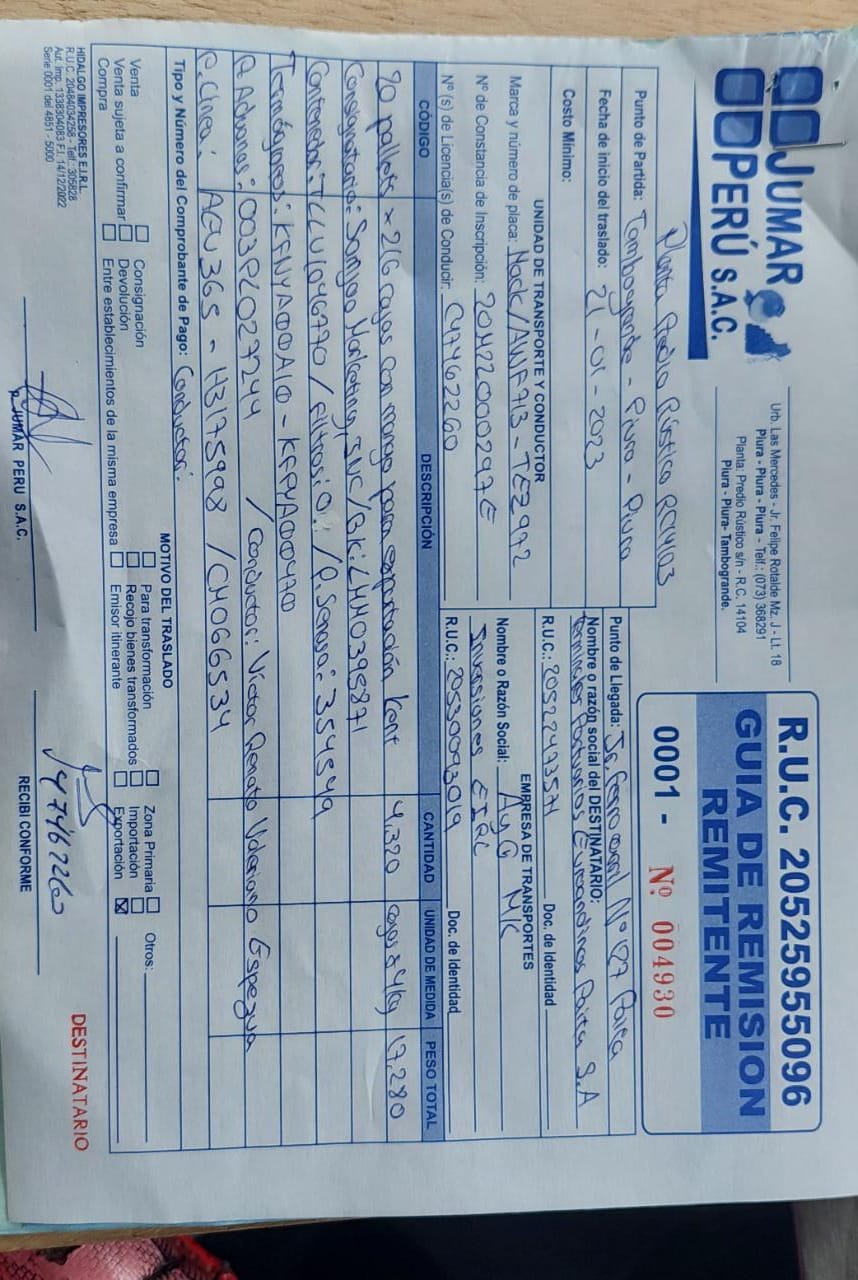 JUMAR
PERÚ S.A.C.
Urb. Las Mercedes - Jr. Felipe Rotalde Mz. J - Lt. 18
Piura - Piura - Piura - Telf.: (073) 368291
Planta: Predio Rústico s/n - R.C. 14104
Piura - Piura- Tambogrande.
R.U.C. 20525955096
GUIA DE REMISION
REMITENTE
0001 - Nº 004930
Planta Predio Rústico RC14103
Punto de Partida: Tambogrande - Piura - Piura
Fecha de inicio del traslado: 21-01-2023
Costo Mínimo:
Punto de Llegada: Jr. Ferrocarril Nº 127 Paita
Nombre o razón social del DESTINATARIO:
Terminales Portuarios Euroandinos Paita S.A
R.U.C.: 20522473571 Doc. de Identidad
UNIDAD DE TRANSPORTE Y CONDUCTOR
Marca y número de placa: Mack/AWF713 - TEZ972
Nº de Constancia de Inscripción: 20M22000297E
Nº (s) de Licencia(s) de Conducir: C47462260
EMPRESA DE TRANSPORTES
Nombre o Razón Social: AyG MK
Inversiones EIRL
R.U.C.: 20530093019 Doc. de Identidad
CÓDIGO DESCRIPCIÓN CANTIDAD UNIDAD DE MEDIDA PESO TOTAL
20 pallets x 216 cajas con mango para exportación Kent 4,320 cajas x 4kg 17,280
Consignatario: Samjoo Marketing, INC/BK: LMM0395871
Contenedor: TLLU1046770 / Filtros: 0 / P. Senasa: 354549
Termógrafos: KFNYA00A10 - KFPYA00470
P. Aduanas: 003PL027244 / Conductor: Victor Renato Valeriano Espezua
P. Línea: AGU365 - H3175998 / CM066534
Tipo y Número del Comprobante de Pago: Conductor:
MOTIVO DEL TRASLADO
Venta
Venta sujeta a confirmar
Compra
Consignación
Devolución
Entre establecimientos de la misma empresa
Para transformación
Recojo bienes transformados
Emisor itinerante
Zona Primaria
Importación
Exportación
Otros:
HIDALGO IMPRESORES E.I.R.L.
R.U.C. 20484034258 - Telf.: 305828
Aut. Imp. 1338304083 F.I. 14/12/2022
Serie 0001 del 4851 - 5000
P. JUMAR PERU S.A.C.
47462260
RECIBI CONFORME
DESTINATARIO